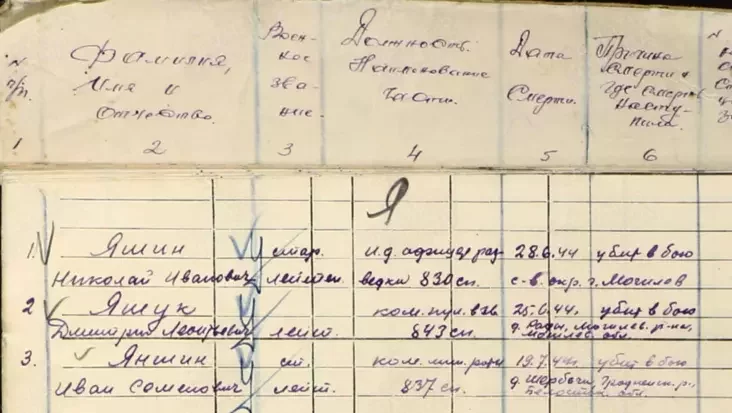 N п/п.
Фамилия, Имя и отчество.
Воен- ное зва- ние.
Должность. Наименование части.
Дата смерти.
Причина смерти и где смерть насту- пила.
1 2 3 4 5 6
Я
1. Яшин стар. и.д. офицер раз- 28.6.44 убит в бою
Николай Иванович лейтен. ведки 830 сп. с-в. окр. г. Могилев
2 Яшук ком. пул. взв. 25.6.44г. убит в бою
Дмитрий Леонтьевич лейт. 843 сп. Могилев. р-на,
обл.
3. Яншин ст. ком. мин. роты 19.7.44г. убит в бою
Иван Семенович лейт. 837 сп. д. Гродненск. р.,
Белосток. обл.